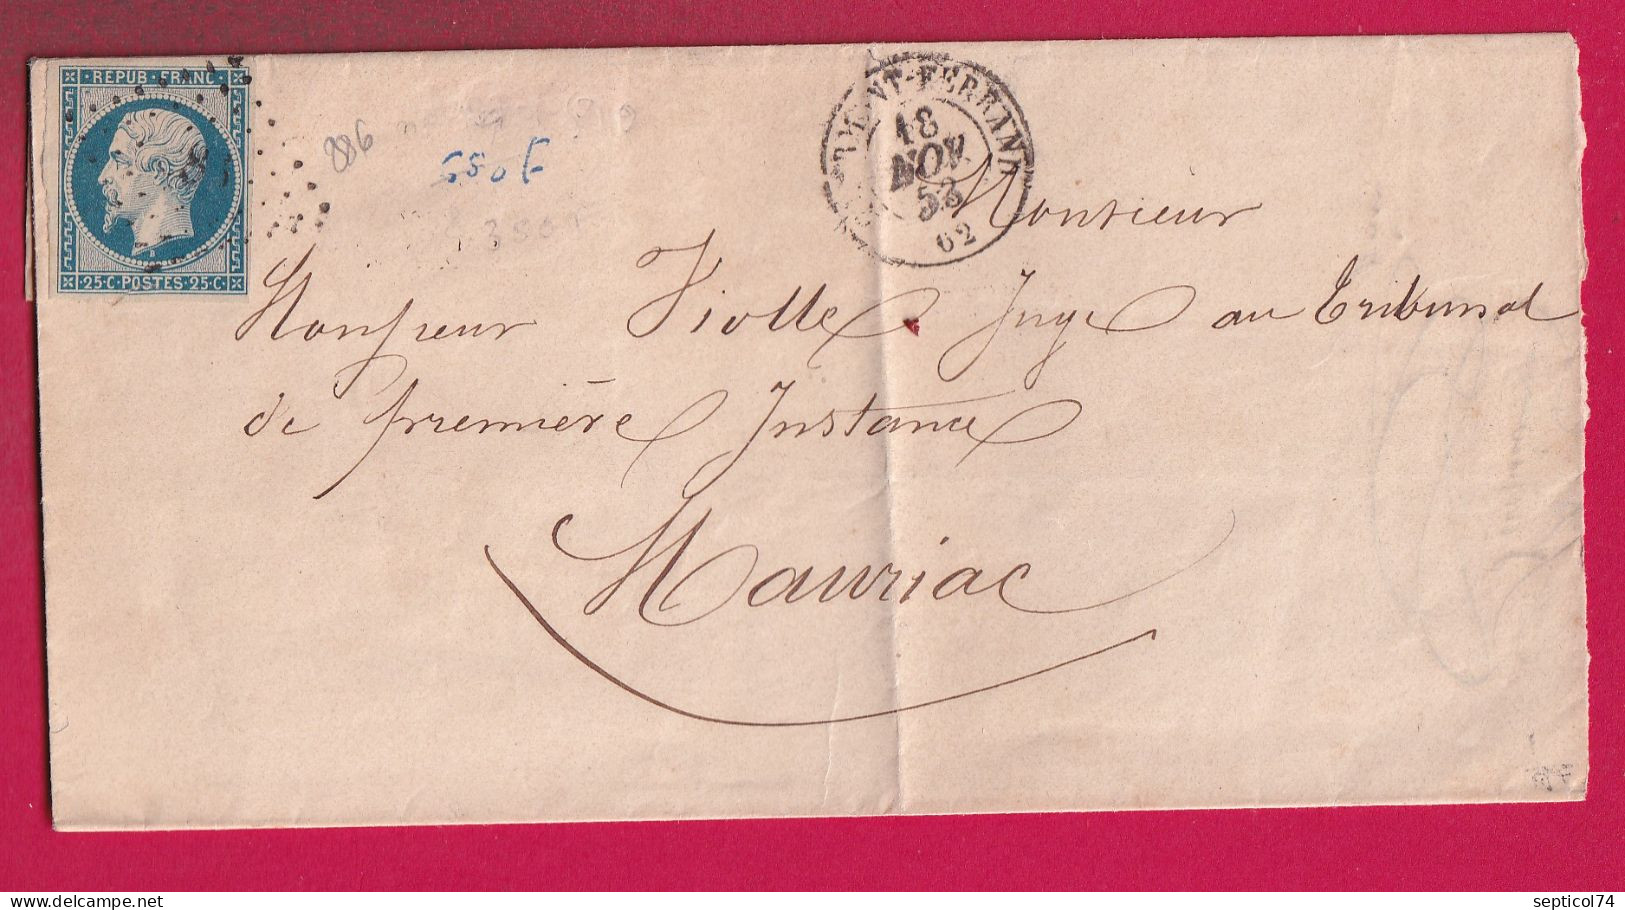 REPUB·FRANC
25·C·POSTES·25·C·
886
650 F
3501
MONT-FERRAND
18
NOV.
53
62
Monsieur
Monsieur Violle, Juge au Tribunal
de première Instance
Mauriac
septicol74